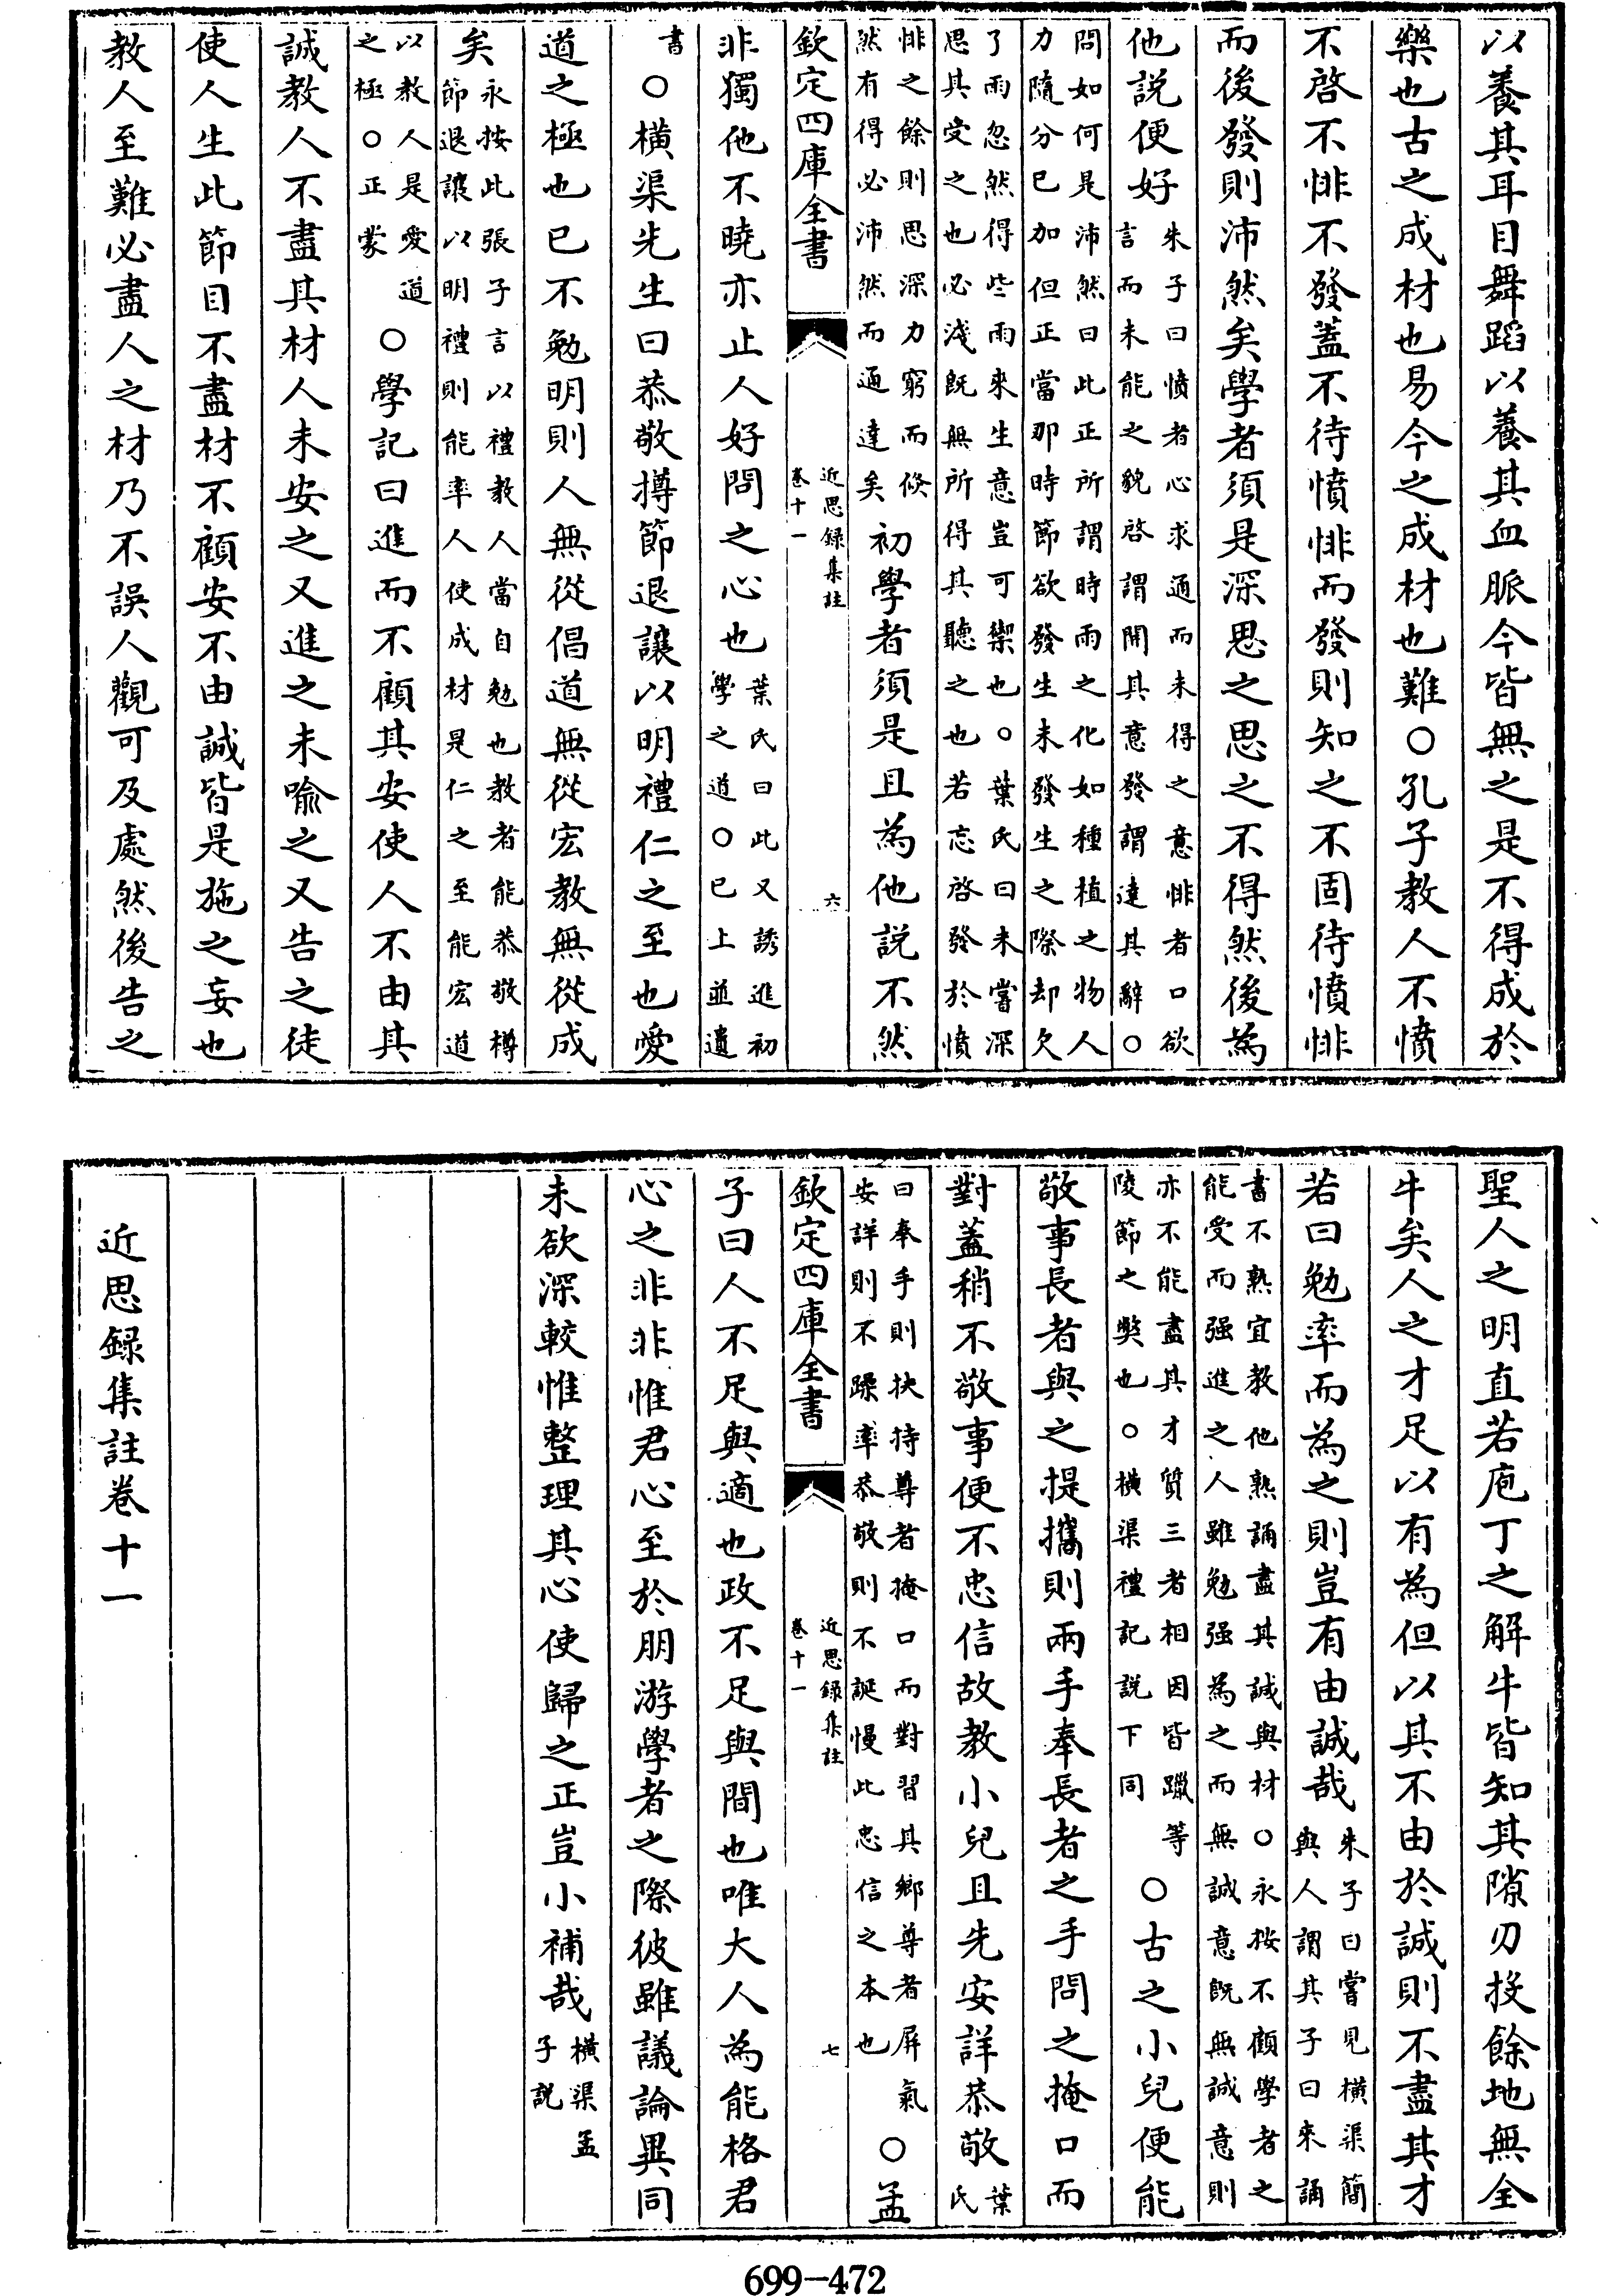 以養其耳目舞蹈以養其血脈今皆無之是不得成於
樂也古之成材也易今之成材也難○孔子教人不憤
不啓不悱不發蓋不待憤悱而發則知之不固待憤悱
而後發則沛然矣學者須是深思之思之不得然後為
他説便好朱子曰憤者心求通而未得之意悱者口欲
言而未能之貌啓謂開其意發謂達其辭○
問如何是沛然曰此正所謂時雨之化如種植之物人
力隨分已加但正當那時節欲發生未發生之際却欠
了雨忽然得些雨來生意豈可禦也○葉氏曰未嘗深
思其受之也必淺既無所得其聽之也若忘啓發於憤
悱之餘則思深力窮而倏
然有得必沛然而通達矣初學者須是且為他説不然
欽定四庫全書
近思録集註
卷十一
六
非獨他不曉亦止人好問之心也葉氏曰此又誘進初
學之道○已上並遺
書○橫渠先生曰恭敬撙節退讓以明禮仁之至也愛
道之極也已不勉明則人無從倡道無從宏教無從成
矣永按此張子言以禮教人當自勉也教者能恭敬樽
節退讓以明禮則能率人使成材是仁之至能宏道
以教人是愛道
之極○正蒙○學記曰進而不顧其安使人不由其
誠教人不盡其材人未安之又進之未喻之又告之徒
使人生此節目不盡材不顧安不由誠皆是施之妄也
教人至難必盡人之材乃不誤人觀可及處然後告之
聖人之明直若庖丁之解牛皆知其隙刃投餘地無全
牛矣人之才足以有為但以其不由於誠則不盡其才
若曰勉率而為之則豈有由誠哉朱子曰嘗見橫渠簡
與人謂其子曰來誦
書不熟宜教他熟誦盡其誠與材○永按不顧學者之
能受而强進之人雖勉强為之而無誠意既無誠意則
亦不能盡其才質三者相因皆躐等
陵節之獘也○橫渠禮記説下同○古之小兒便能
敬事長者與之提攜則兩手奉長者之手問之掩口而
對蓋稍不敬事便不忠信故教小兒且先安詳恭敬葉
氏
曰奉手則扶持尊者掩口而對習其鄉尊者屏氣
安詳則不躁率恭敬則不誕慢此忠信之本也○孟
欽定四庫全書
近思録集註
卷十一
七
子曰人不足與適也政不足與間也唯大人為能格君
心之非非惟君心至於朋游學者之際彼雖議論異同
未欲深較惟整理其心使歸之正豈小補哉橫渠孟
子説
近思録集註卷十一
699-472